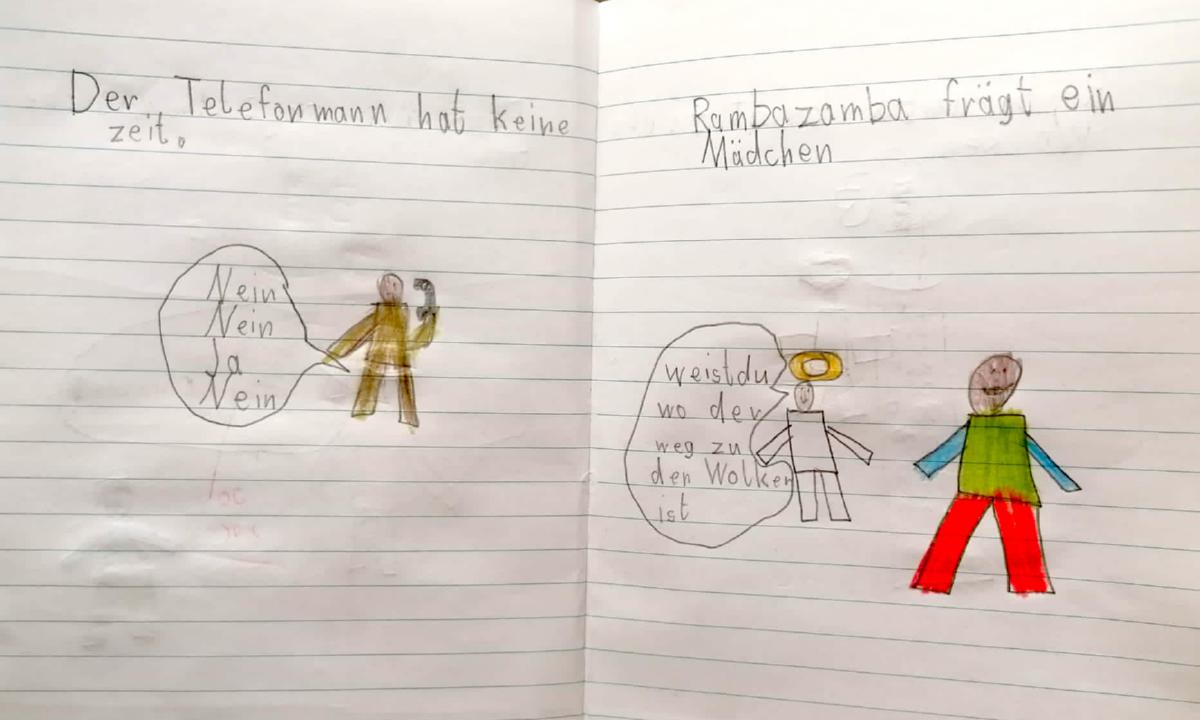 Der Telefonmann hat keine
zeit.
Nein
Nein
Ja
Nein
Rambazamba frägt ein
Mädchen
weistdu
wo der
weg zu
den Wolken
ist